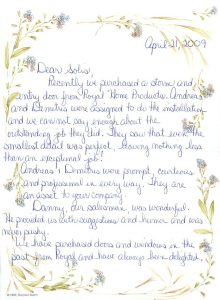 April 21, 2009
Dear Solis,
Recently we purchased a storm and
entry door from Royal Home Products. Andreas
and Demetrus were assigned to do the installation
and we can not say enough about the
outstanding job they did. They saw that even the
smallest detail was perfect. Having nothing less
than an exceptional job!
Andreas & Demetrus were prompt, courteous
and professional in every way. They are
an asset to your company.
Danny, our salesman was wonderful.
He provided us with suggestions and humor and was
never pushy.
We have purchased doors and windows in the
past from Royal and have always been delighted.